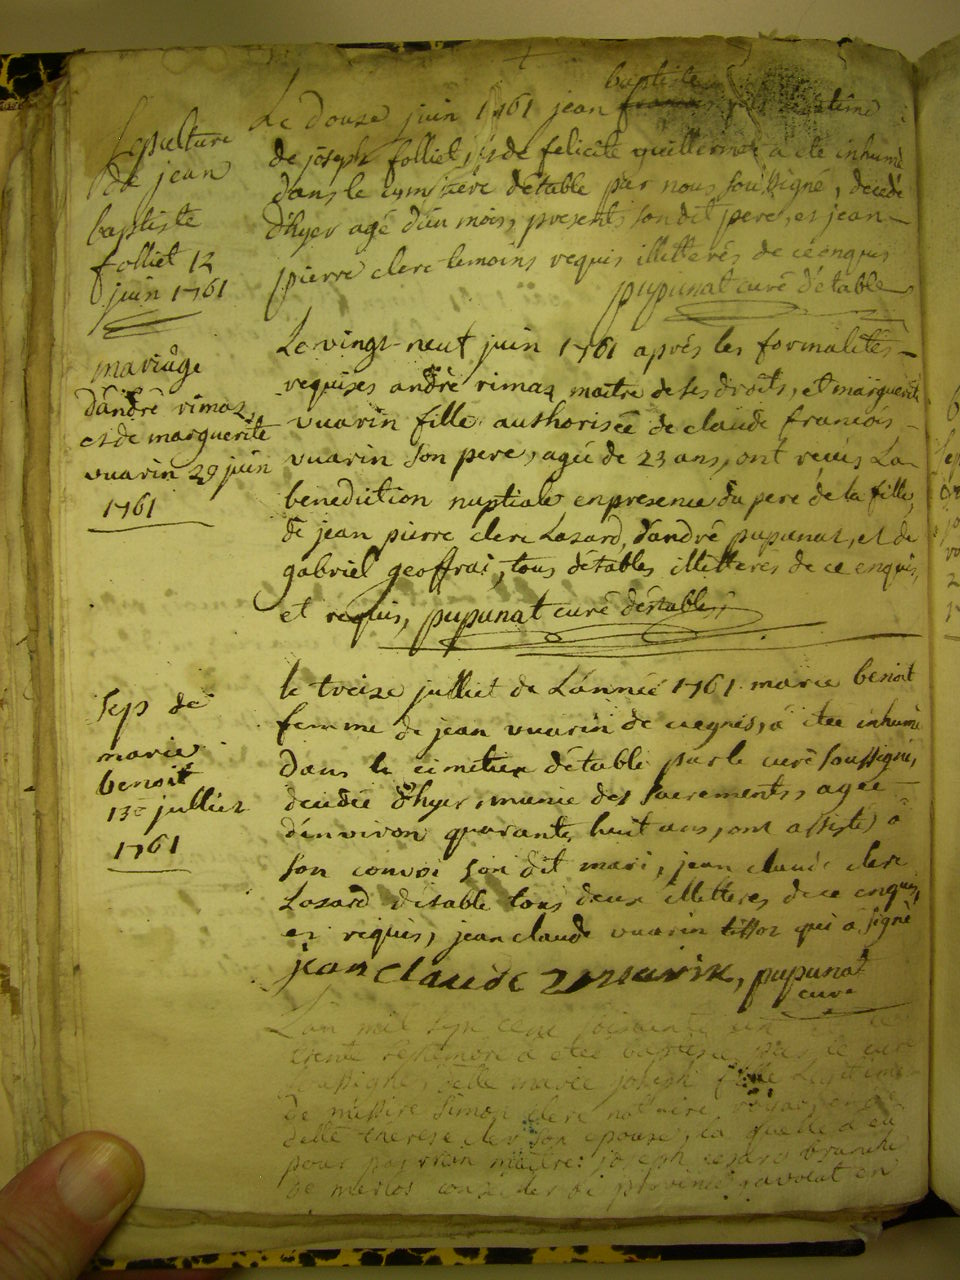 Sepulture
de jean
baptiste
folliet 12
juin 1761
baptiste
Le douze juin 1761 jean
de joseph folliet, et de felicité guillermet a été inhumé
dans le cymetière d'étable par nous soussigné, décédé
d'hyer agé d'un mois, presents son dit pere, et jean
pierre clerc temoins requis illetterés de ce enquis
pupunat curé d'étable
mariage
d'andrè rimaz,
et de marguerite
vuarin 29 juin
1761
Le vingt-neuf juin 1761 après les formalités
requises andrè rimaz maitre de ses droits, et marguerite
vuarin fille authorisée de claude françois
vuarin son pere, agée de 23 ans, ont reçus La
benediction nuptiale en presence du pere de la fille,
de jean pierre clerc Lazard, d'andré pupunat, et de
gabriel geoffrai, tous d'étables illetterés de ce enquis,
et requis, pupunat curé d'étables
Sep de
marie
benoit
13e julliet
1761
le treise julliet de L'année 1761 marie benoit
femme de jean vuarin de cregnis, a étée inhumé
dans le cimetiere d'étable par le curé soussigné,
decedée d'hyer, munie des sacrements, agée
d'environ quarante huit ans, ont assistés à
son convoi son dit mari, jean claude clerc
Lazard d'étable tous deux illetteres de ce enquis,
et requis, jean claude vuarin tissot qui a signé
jean claude vuarin, pupunat
curé
L'an mil sept cent soisante un
trente septembre a étée baptisée par le curé
soussigné, delle marie joseph fille Legitime
de messire Simon clerc nottaire royal, et de
delle therese clerc son epouse, la quelle a eu
pour parrain maitre joseph